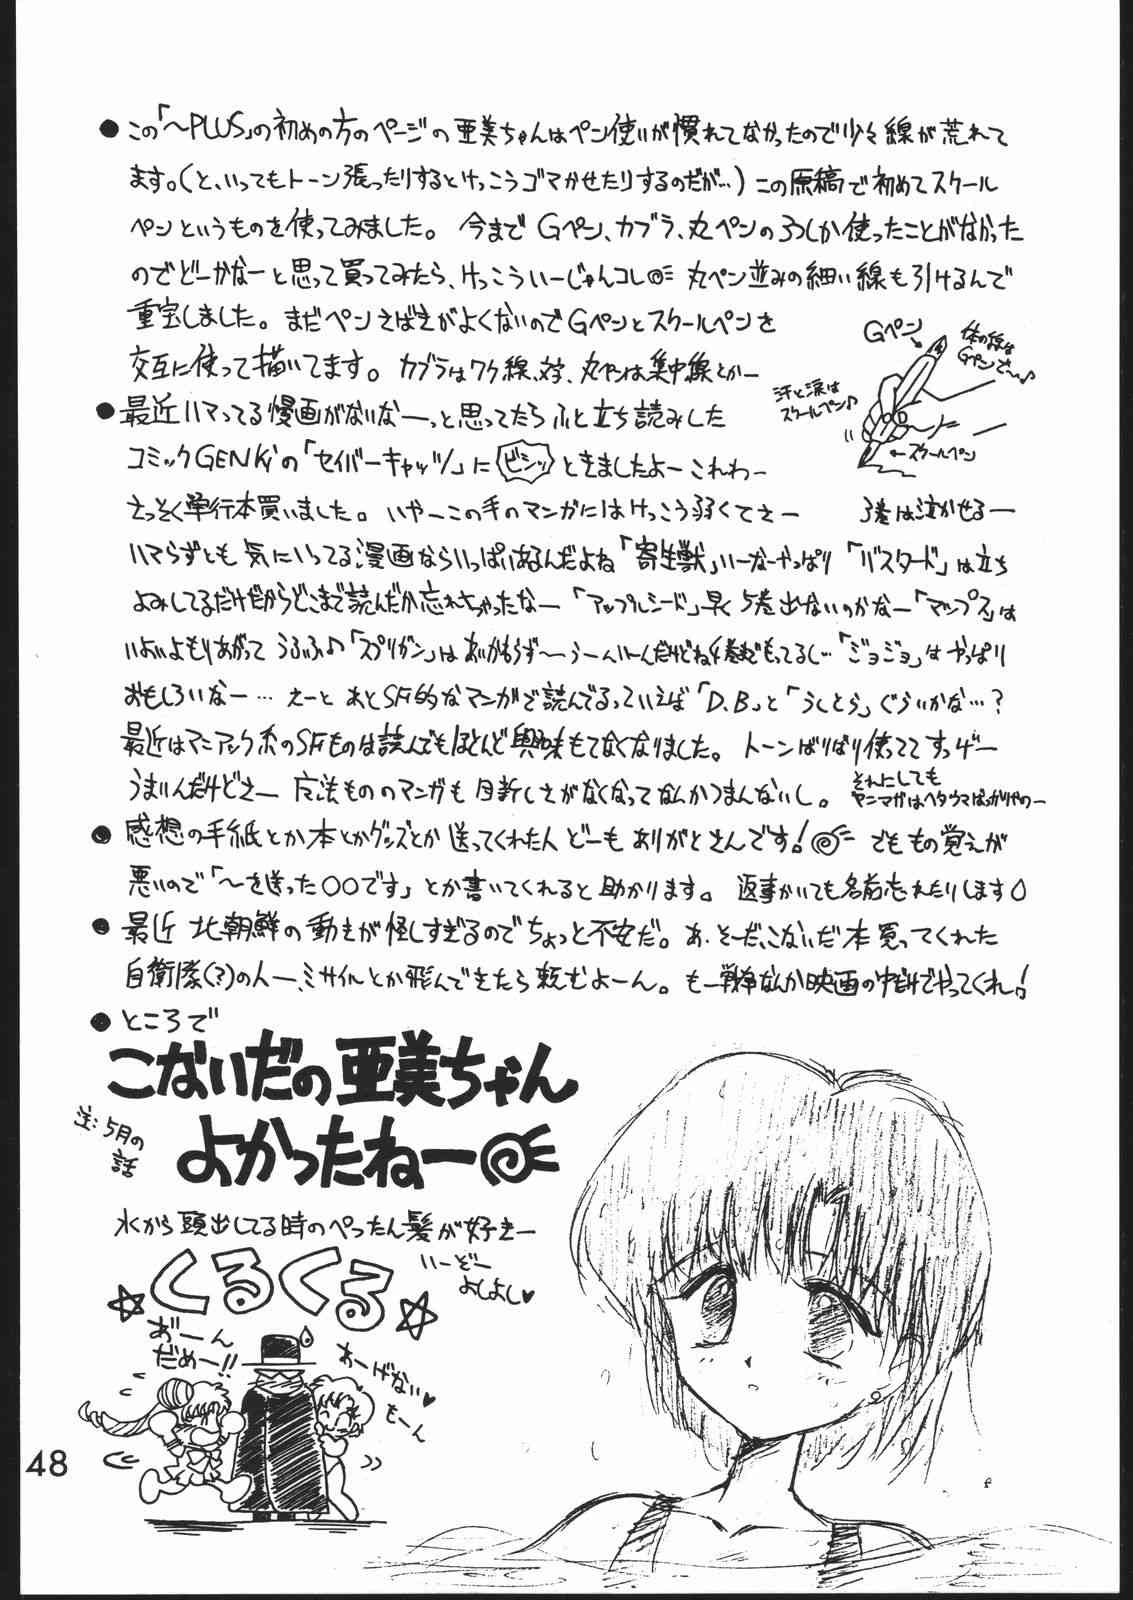 ●この「～PLUS」の初めの方のページの亜美ちゃんはペン使いが慣れてなかったので少々線が荒れて
ます。(と、いってもトーン張ったりするとけっこうゴマかせたりするのだが…)この原稿で初めてスクール
ペンというものを使ってみました。今までGペン、カブラ、丸ペンの3つしか使ったことがなかった
のでどーかなーと思って買ってみたら、けっこういーじゃんコレ 丸ペン並みの細い線も引けるんで
重宝しました。まだペンさばきがよくないのでGペンとスクールペンを
交互に使って描いてます。カブラはワク線、文字、丸ペンは集中線とかー
Gペン
体の線は
Gペンさっ♪
汗と涙は
スクールペン♪
←スクールペン
●最近ハマってる漫画がないなーっと思ってたらふと立ち読みした
コミックGENKiの「セイバーキャッツ」にビシッときましたよーこれわー
さっそく単行本買いました。いやーこの手のマンガにはけっこう弱くてさー 3巻は泣かせるー
ハマらずとも気にいってる漫画ならいっぱいあるんだよね「寄生獣」いーなーやっぱり「バスタード」は立ち
よみしてるだけだからどこまで読んだか忘れちゃったなー「アップルシード」早く5巻出ないのかなー「マップス」は
いよいよもりあがって うふふ♪「スプリガン」はあいかわらず～うーんいーんだけどね 「ジョジョ」はやっぱり
おもしろいなー…えーと あとSF的なマンガで読んでるっていえば「D.B」と「うしとら」ぐらいかな…?
最近はマニアック系のSFものは読んでもほとんど興味もてなくなりました。トーンばりばり使っててすっげー
うまいんだけどさー 魔法もののマンガも目新しさがなくなってなんかつまんないし。
それにしても
ヤニマガはヘタウマばっかりやのー
●感想の手紙とか本とかグッズとか送ってくれた人どーもありがとさんです! でももの覚えが
悪いので「～を送った○○です」とか書いてくれると助かります。返事かいても名前忘れたりします
●最近北朝鮮の動きが怪しすぎるのでちょっと不安だ。あ、そーだ、こないだ本買ってくれた
自衛隊(?)の人ー、ミサイルとか飛んできたら頼むよーん。もー戦争なんか映画の中だけでやってくれ!
●ところで
こないだの亜美ちゃん
よかったねー
注:5月の
話
水から頭出してる時のぺったん髪が好きー
いーどー
よしよし♥
☆くるくる☆
あ゛ーん
だめー!!
あーげない♥
もーん
48